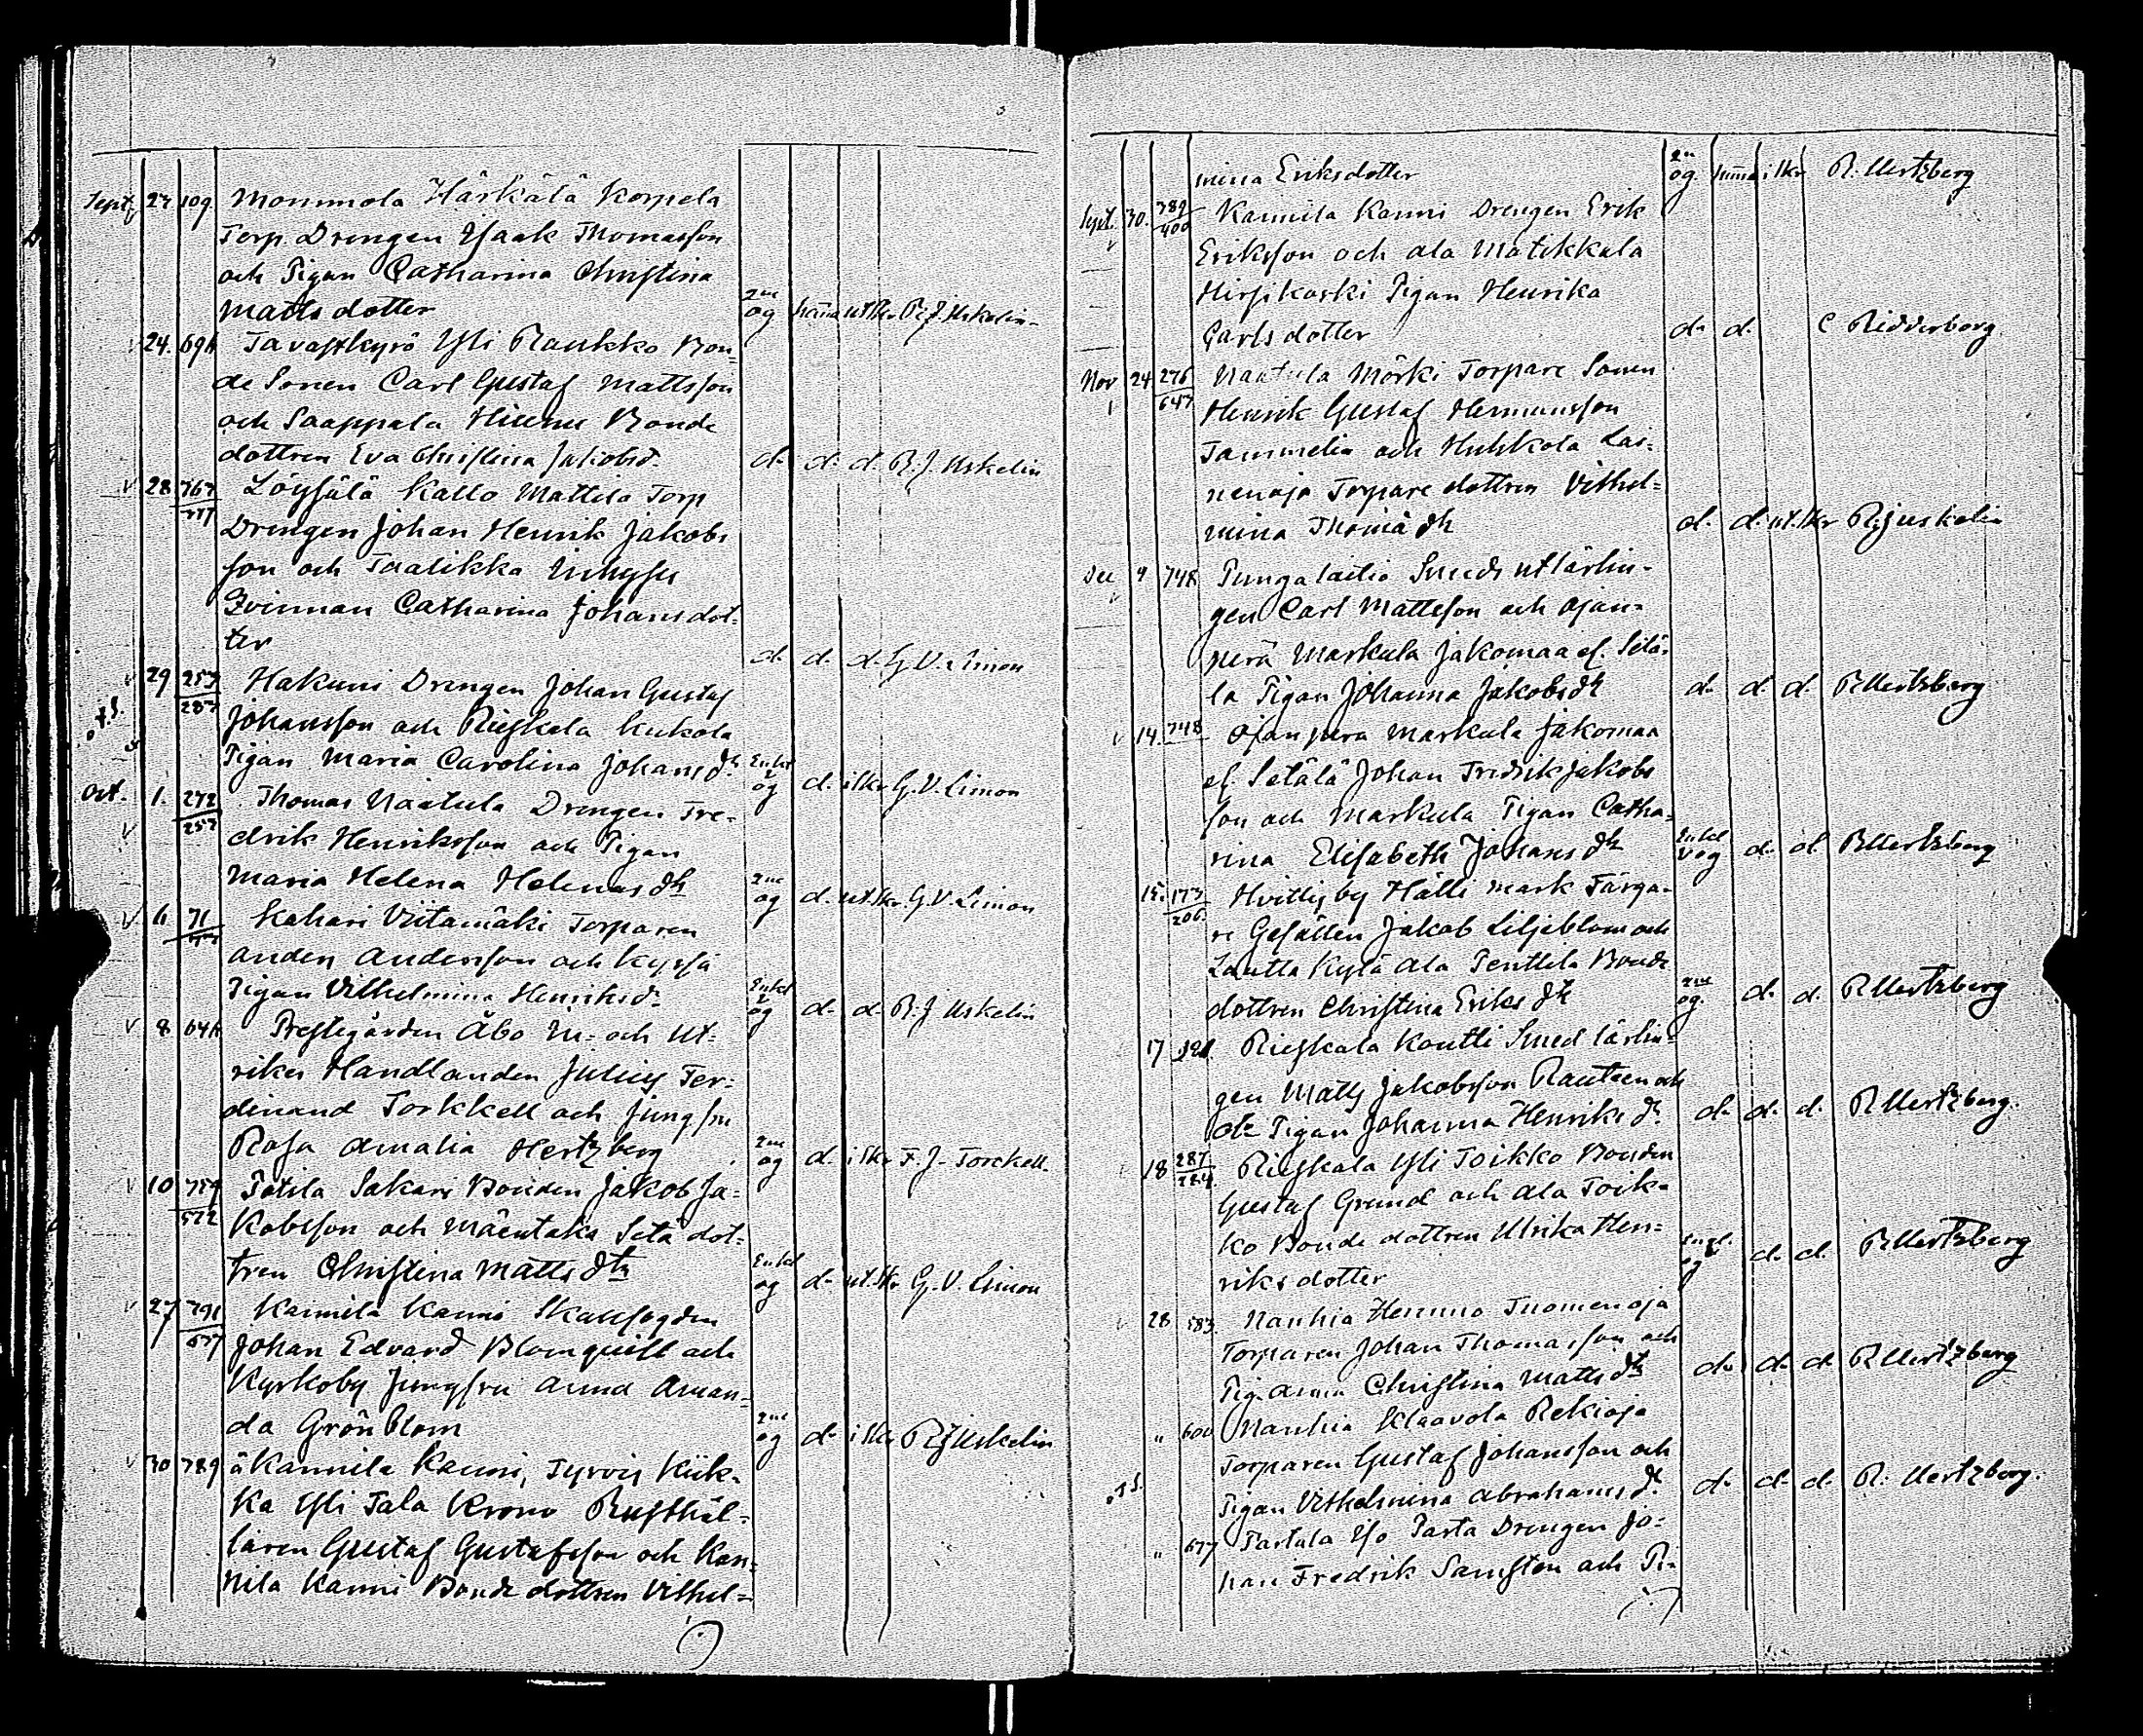 Sept 27 109. Mommola Härkälä Korpela
Torp. Drengen Isaak Thomasson
och Pigan Catharina Christina
Matts dotter 2ne äg hema ut Skr R. J. Uskelin
24. 694 Tavastkyrö Yli Raukko Bon=
de Sonen Carl Gustaf Mattsson
och Saappala Bonde
dottren Eva Christina Jakobsd. d. d. d. R. J. Uskelin
28 767 Löysälä Kallo Mattila Torp
Drengen Johan Henrik Jakobs
son och Taalikka
Qvinnan Catharina Johansdot=
ter d. d. d. G. V. Limon
29 257/287 Hakuni Drengen Johan Gustaf
Johansson och Rieskala Kukola
Pigan Maria Carolina Johansdr Enkel äg d. i Skr G. V. Limon
Oct. 1. 272/257 Thomas Naatula Drengen Fre=
drik Henriksson och Pigan
Maria Helena Helenasdr 2ne äg d. ut. Skr. G. V. Limon
6 71 Kahari Viitamäki Torparen
Anders Andersson och Kyssä
Pigan Vilhelmina Henriksd. Enkel äg d. d. R. J. Uskelin
8 644 Prestegården Åbo In- och Ut=
rikes Handlanden Julius Fer=
dinand Torkkell och Jungfru
Rosa Amalia Hertzberg 2ne äg d. i Skr F. J. Torckell.
10 759/522 Potila Sakari Bonden Jakob Ja=
kobsson och Mäentaka Setä dot=
tren Christina Matts dtr Enkel äg d. ut. Skr G. V. Limon
27 791/677 Kannila Kanni Skallfogden
Johan Edvard Blomquist och
Kyrkoby Jungfru Anna Aman=
da Grönblom 2ne äg d. i Skr R J Uskelin
30 789 å Kannila Kanni, Tyrvis Kiik=
ka Yli Tala Krono Rusthål=
laren Gustaf Gustafsson och Kan=
nila Kanni Bonde dottren Vilhel=
mina Eriksdotter 2ne äg. hema i Skr R. Hertzberg
Sept. 30. 789/400 Kannila Kanni Drengen Erik
Eriksson och Ala Matikkala
Hirsikoski Pigan Henrika
Carls dotter d. d. C Ridderborg
Nov 24 276/647 Naatula Mörki Torpare Sonen
Henrik Gustaf Hermansson
Tammelin och Huhkola Lai=
nenoja Torpare dottren Vilhel=
mina Thomä dtr d. d. ut. Skr R. J Uskelin
Dec 9 748 Pungalaitio Smeds utlärlin=
gen Carl Mattsson och Ojan=
perä Markula Jakomaa el. Setä=
lä Pigan Johanna Jakobsdtr d. d. d. R Hertzberg
14. 748 Ojanpera Markula Jakomaa
el. Setälä Johan Fredrik Jakobs
son och Markula Pigan Catha=
rina Elisabeth Johans dtr Enkel äg d. d R Hertzberg
15. 173/206. Hvittis by Hälli mark Färga=
re Gesällen Jakob Liljeblom och
Lautta Kylä Ala Penttilä Bonde
dottren Christina Eriks dtr 2ne äg. d. d. R Hertzberg
17 321 Rieskala Koutti Smed lärlin=
gen Matts Jakobsson Rauteen och
d:o Pigan Johanna Henriks dr. d. d. d. R Hertzberg.
18 287/284. Rieskala Yli Toikko Bonden
Gustaf Grund och Ala Toik=
ko Bonde dottren Ulrika Hen=
riks dotter Enkel äg d. d. R Hertzberg
28 583. Nanhia Hemmo Tuomenoja
Torparen Johan Thomasson och
Pig. Anna Christina Matts dtr d. d. d. R Hertzberg
" 600 Nanhia Klaavola Rekioja
Torparen Gustaf Johansson och
Pigan Vilhelmina Abrahams dr. d. d. d. R. Hertzberg.
" 677 Partala Iso Parta Drengen Jo=
han Fredrik Samsten och Pi=